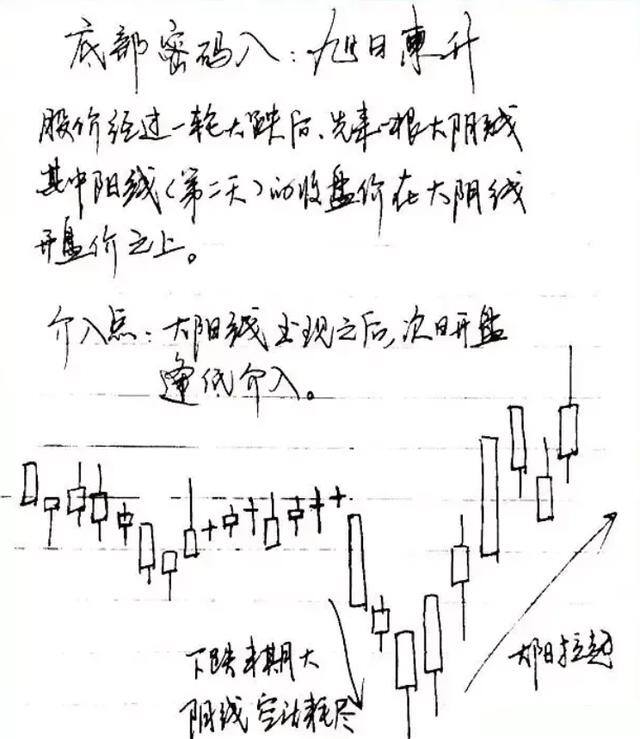 底部密码八：旭日東升
股价经过一轮大跌后、先来一根大阴线
其中阳线（第二天）的收盘价在大阴线
开盘价之上。
介入点：大阳线出现之后,次日开盘
逢低介入。
下跌末期大
阴线空法耗尽
大阳拉起